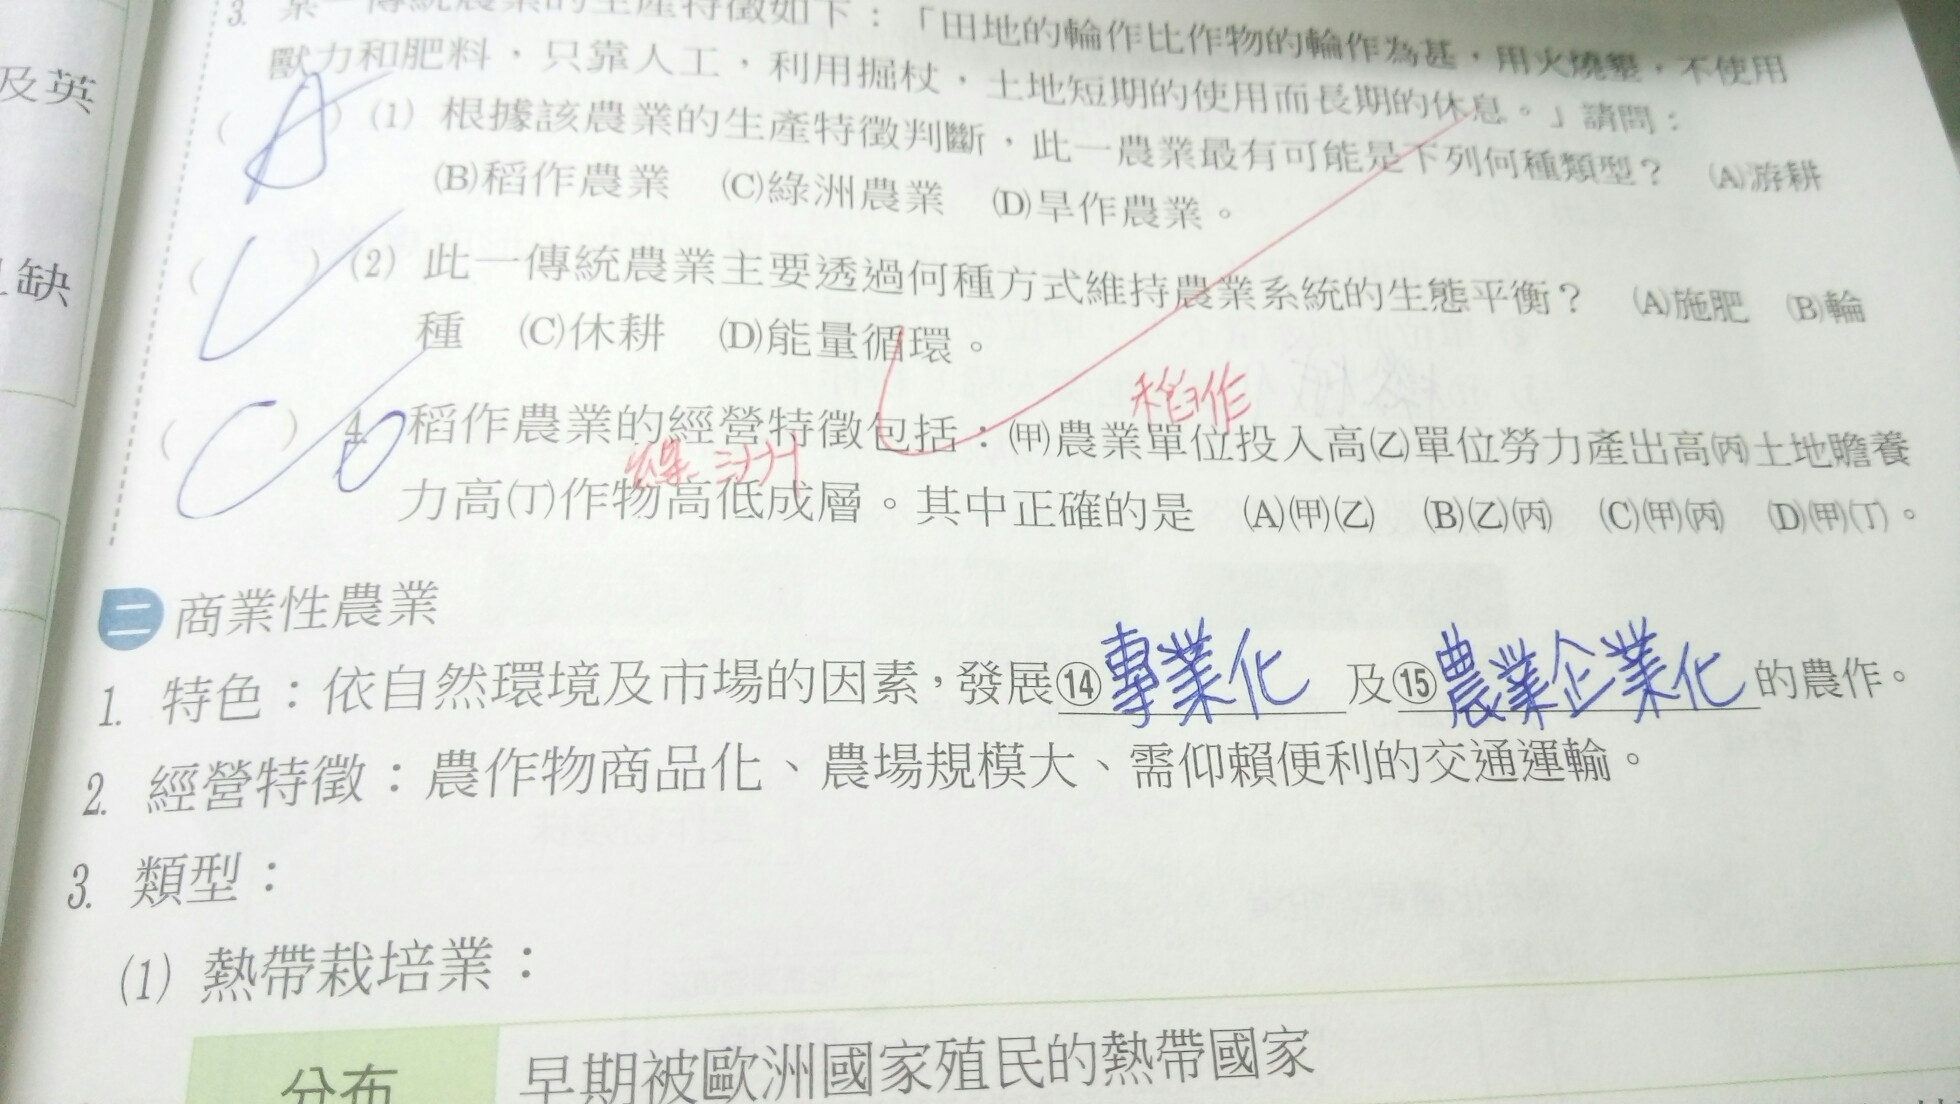 3. 某一傳統農業的生產特徵如下：「田地的輪作比作物的輪作為甚，用火燒墾，不使用
獸力和肥料，只靠人工，利用掘杖，土地短期的使用而長期的休息。」請問：
( A ) (1) 根據該農業的生產特徵判斷，此一農業最有可能是下列何種類型？ (A)游耕
(B)稻作農業 (C)綠洲農業 (D)旱作農業。
( ) (2) 此一傳統農業主要透過何種方式維持農業系統的生態平衡？ (A)施肥 (B)輪
種 (C)休耕 (D)能量循環。
稻作
( C ) 4. 稻作農業的經營特徵包括：(甲)農業單位投入高(乙)單位勞力產出高(丙)土地贍養
力高(丁)作物高低成層。其中正確的是 (A)(甲)(乙) (B)(乙)(丙) (C)(甲)(丙) (D)(甲)(丁)。
二 商業性農業
1. 特色：依自然環境及市場的因素，發展⑭專業化及⑮農業企業化的農作。
2. 經營特徵：農作物商品化、農場規模大、需仰賴便利的交通運輸。
3. 類型：
(1) 熱帶栽培業：
分布 早期被歐洲國家殖民的熱帶國家
及英
缺